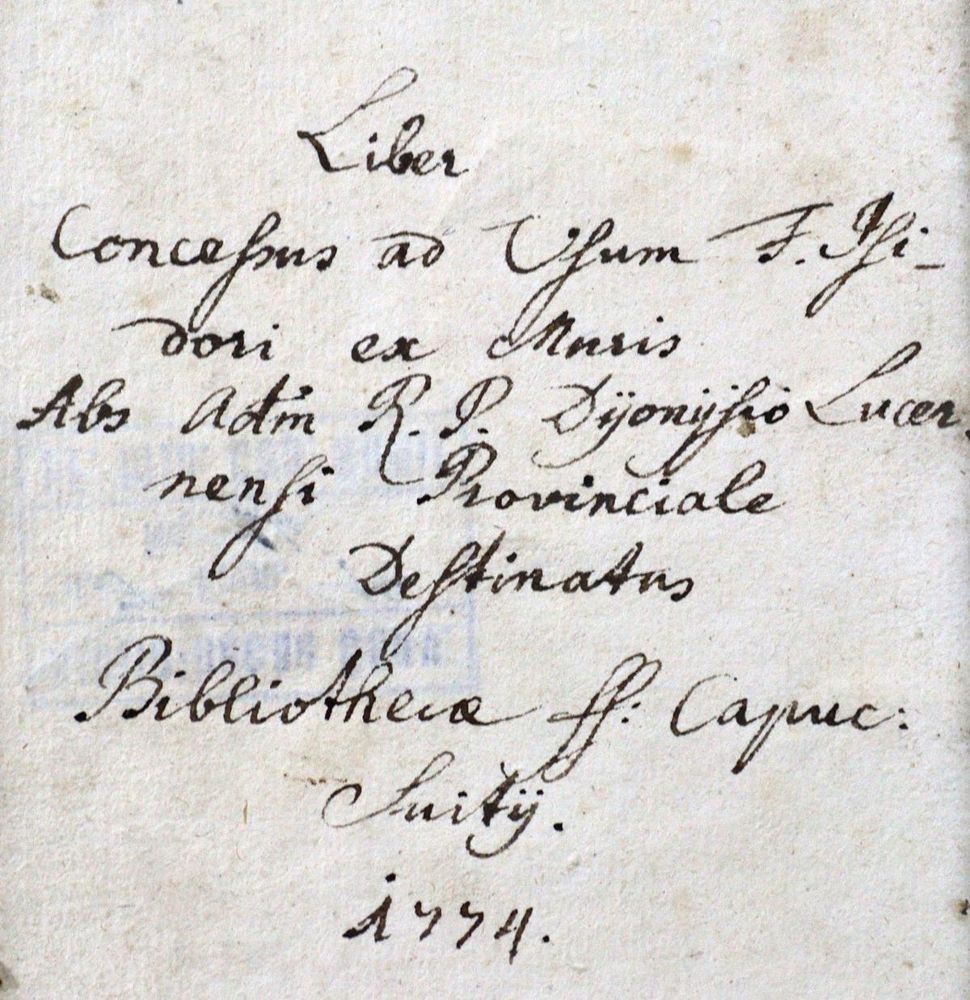 Liber
Concessus ad Usum F. Isi-
dori ex Muris
Abs Adm R. P. Dijonijsio Lucer-
nensi Provinciale
Destinatus
Bibliothecæ ff: Capuc:
Suitij.
1774.